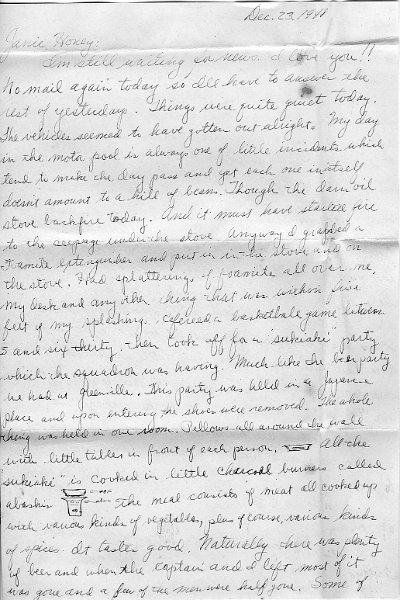 Dec. 23, 19
Janie Honey:
I'm still waiting for news. I love you!!
No mail again today so I'll have to answer the
rest of yesterdays. Things were quite quiet today.
The vehicles seemed to have gotten out alright. My day
in the motor pool is always one of little incidents which
tend to make the day pass and yet each one in itself
doesnt amount to a hill of beans. Though the darn oil
stove backfire today. And it must have started fire
to the seepage under the stove. Anyway I grabbed a
Foamite extinguisher and put in in the stove and on
the stove. Had splattering of foamite all over me,
my desk and any other thing that was within five
feet of my splashing. Refereed a basketball game between
5 and six thirty. Then took off for a "sukiaki" party
which the squadron was having. Much like the beer party
we had at Greenville. This party was held in a Japanese
place and upon entering the shoes were removed. The whole
thing was held in one room. Pillows all around the wall
with little tables in front of each person. All the
"sukiaki" is cooked in little charcoal burners called
The meal consists of meat all cooked up
with various kinds of vegetables, plus of course, various kinds
of spices. It tastes good. Naturally there was plenty
of beer and when the captain and I left most of it
was gone and a few of the men were half gone. Some of